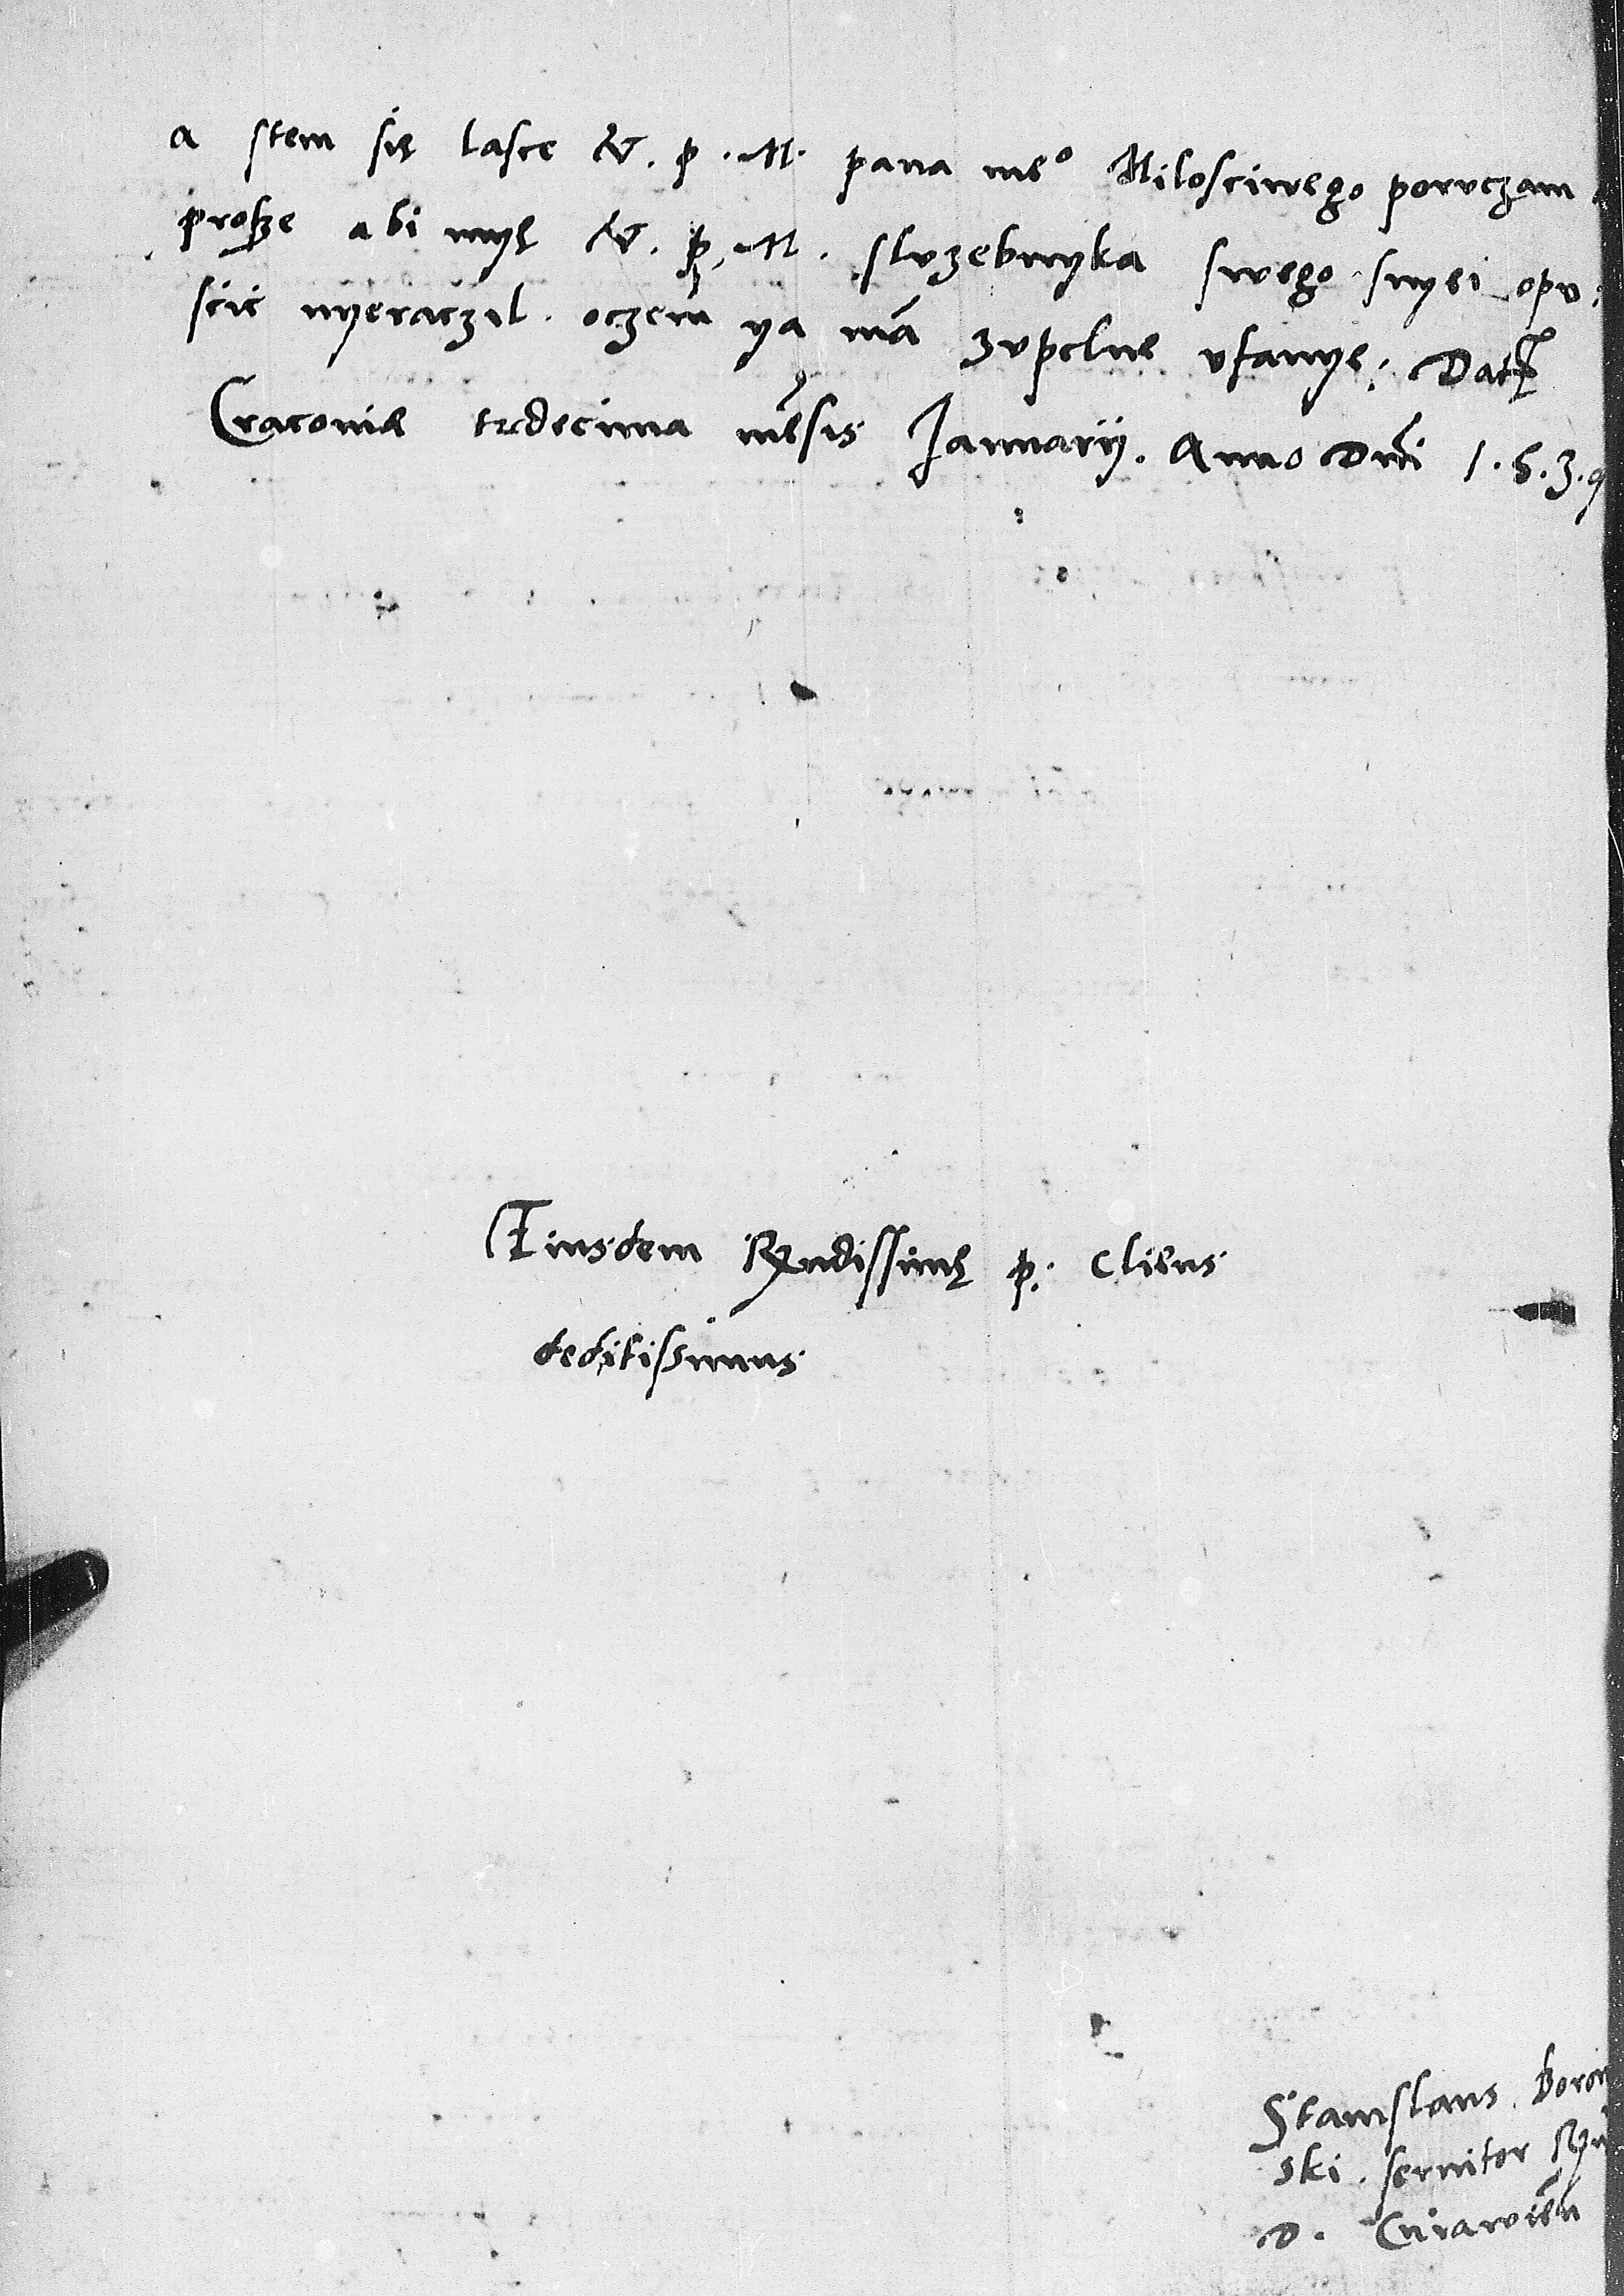 a stem się lasce W. p. M. pana meº Milosciwego porvczam
prosze abi myę W. p. M. slvzebnyka swego snyei opv:
scic nyeraczil. oczem̄ ya mā zvpelne vfanye: Datꝭ
Cracoviæ tredecima mēsis Januarij. Anno Dn̄i 1.5.3.9
Eiusdem R̄ndissimę p. cliens
deditissimus
Stanislaus. boro
ski. servitor R̄
D. Cuiavień